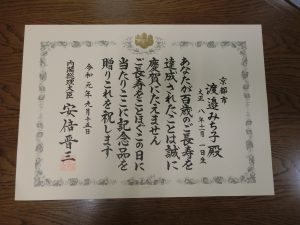 京都市
渡邉みち子殿
大正八年二月一日生
あなたが百歳のご長寿を
達成されたことは誠に
慶賀にたえません
ご長寿をことほぐこの日に
当たりここに記念品を
贈りこれを祝します
令和元年九月十五日
内閣総理大臣 安倍晋三